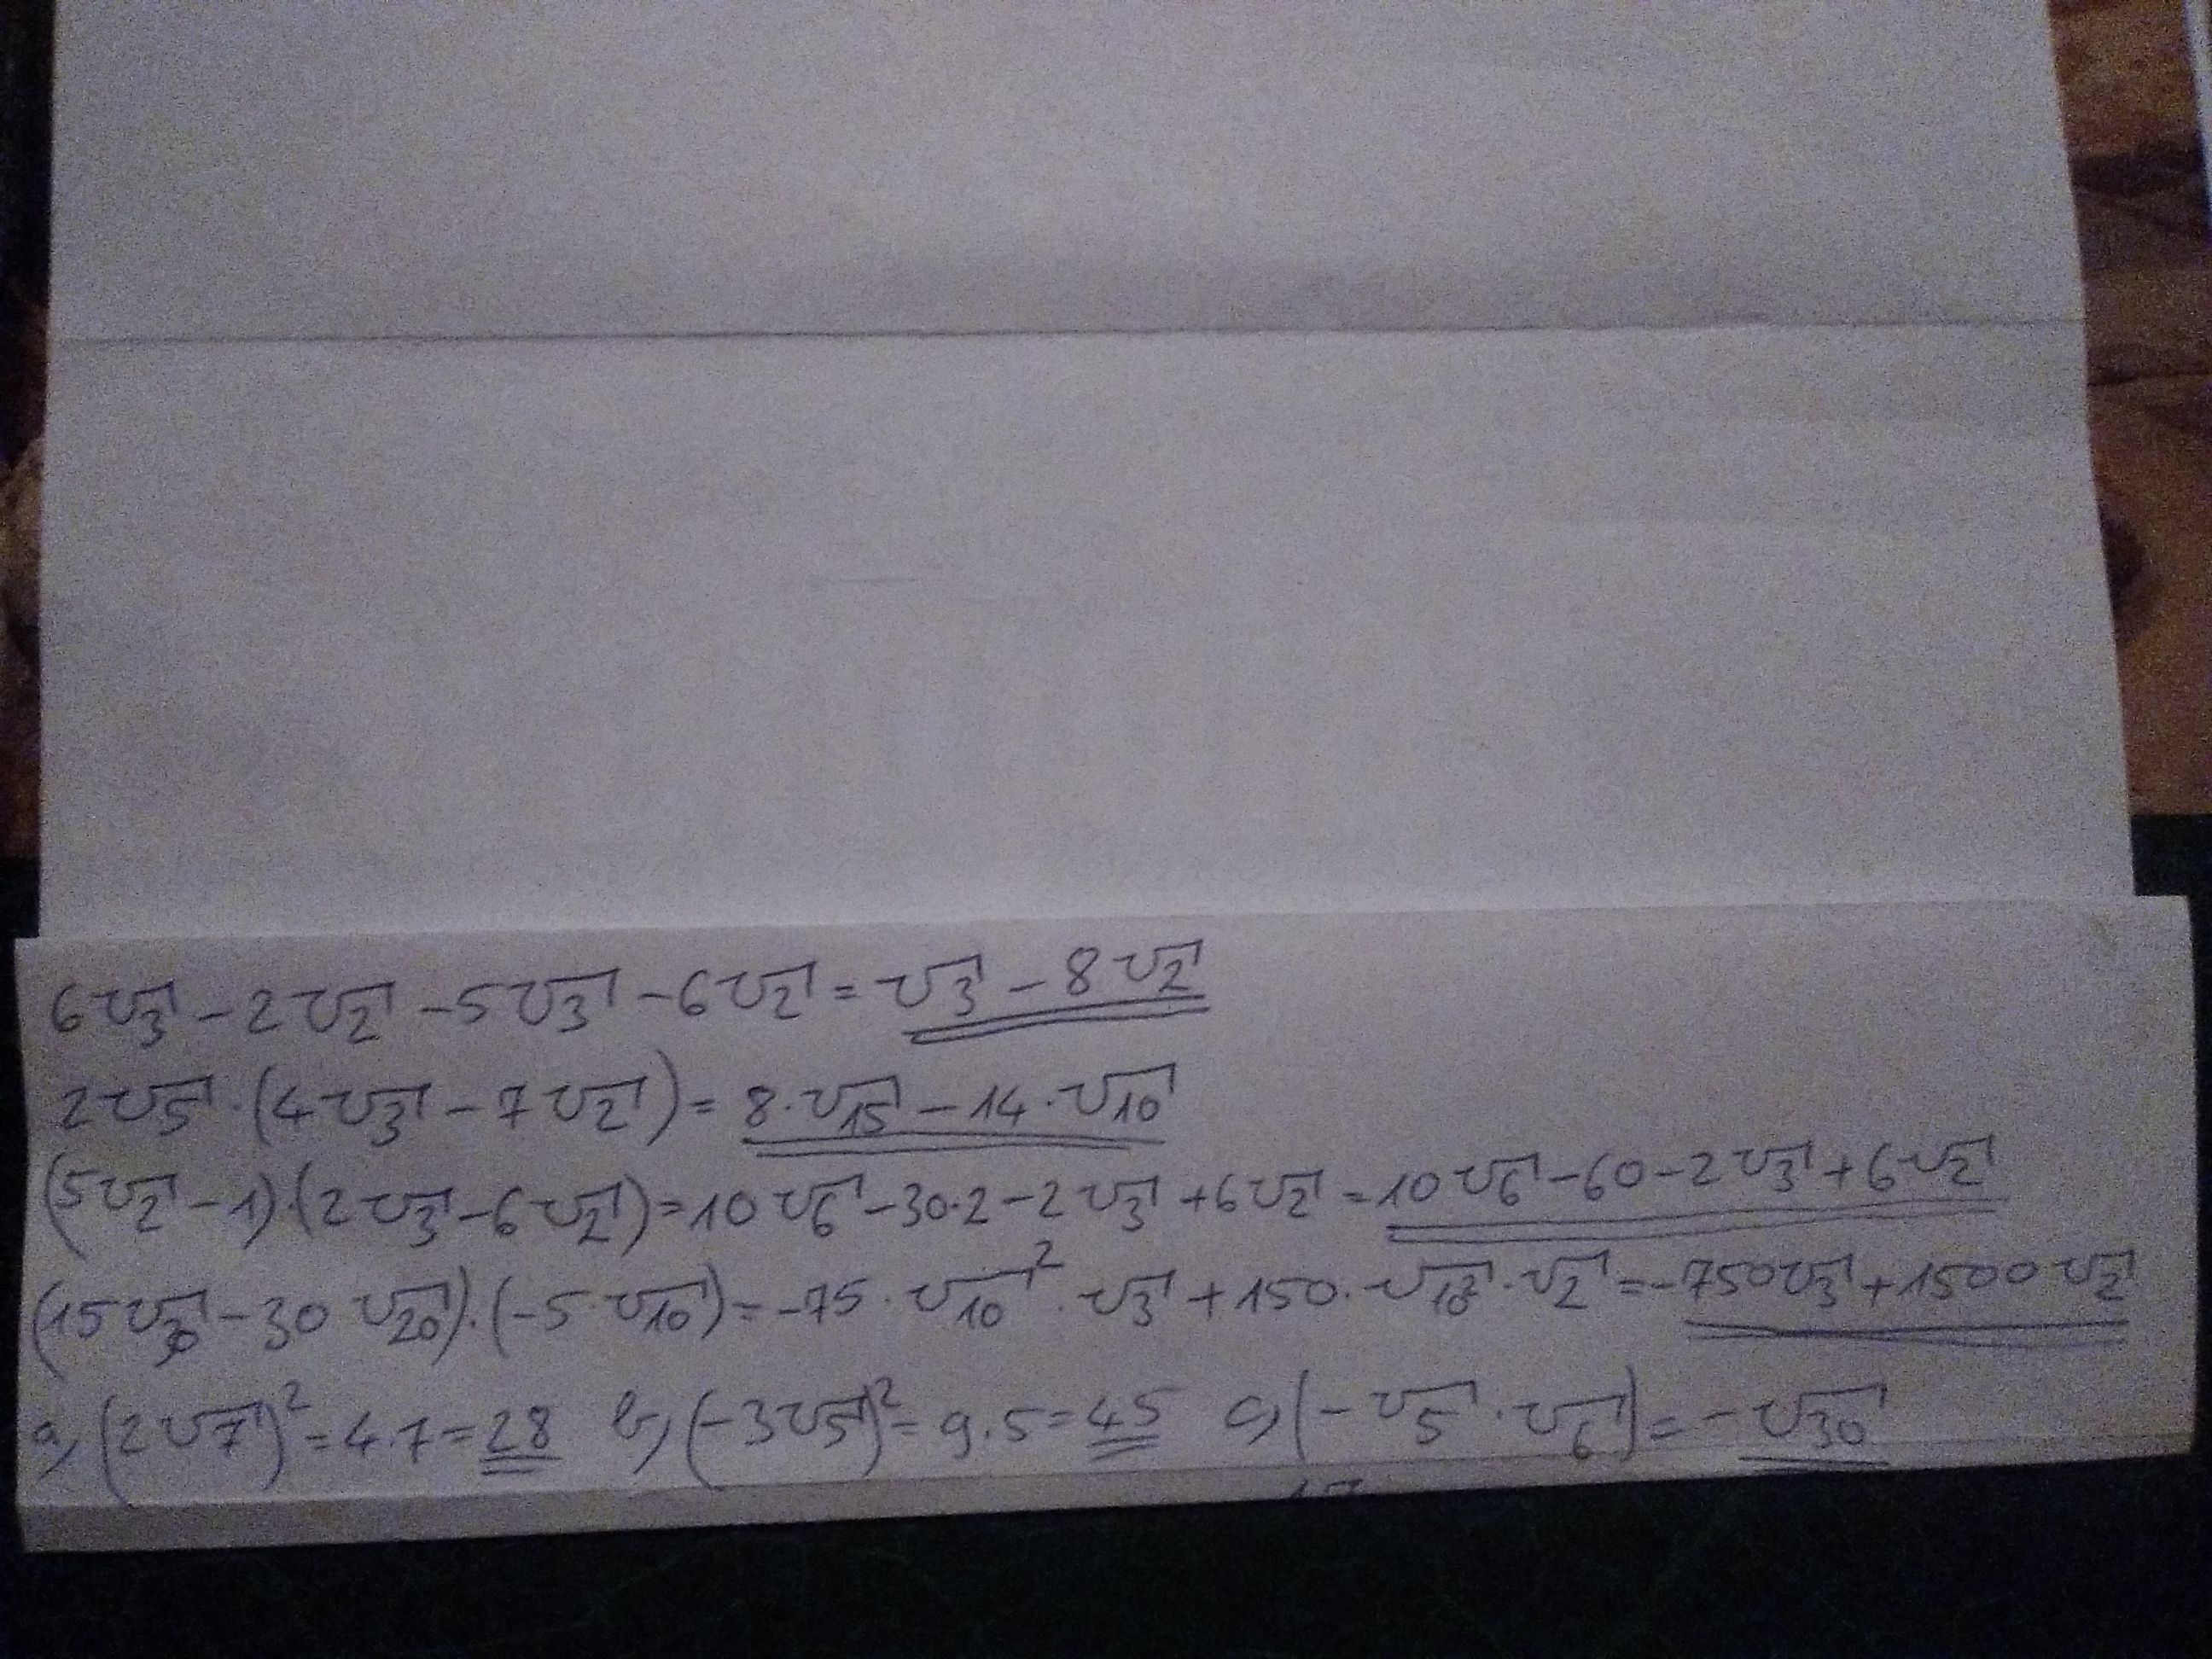 6√3 - 2√2 - 5√3 - 6√2 = √3 - 8√2
2√5 · (4√3 - 7√2) = 8·√15 - 14·√10
(5√2 - 1)·(2√3 - 6√2) = 10√6 - 30·2 - 2√3 + 6√2 = 10√6 - 60 - 2√3 + 6√2
(15√30 - 30√20)·(-5·√10) = -75·√10²·√3 + 150·√10²·√2 = -750√3 + 1500√2
a) (2√7)² = 4·7 = 28 b) (-3√5)² = 9·5 = 45 c) (-√5·√6) = -√30